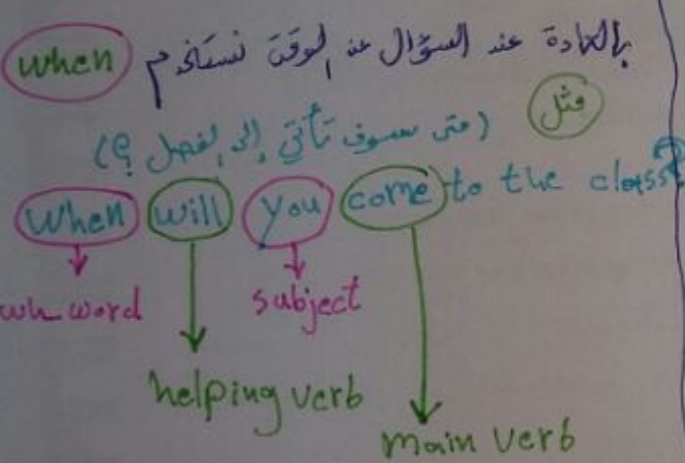 بالعادة عند السؤال عن الوقت نستخدم when
مثل
(متى سوف تأتي إلى الفصل ؟)
When will you come to the class?
wh_word
subject
helping verb
main verb